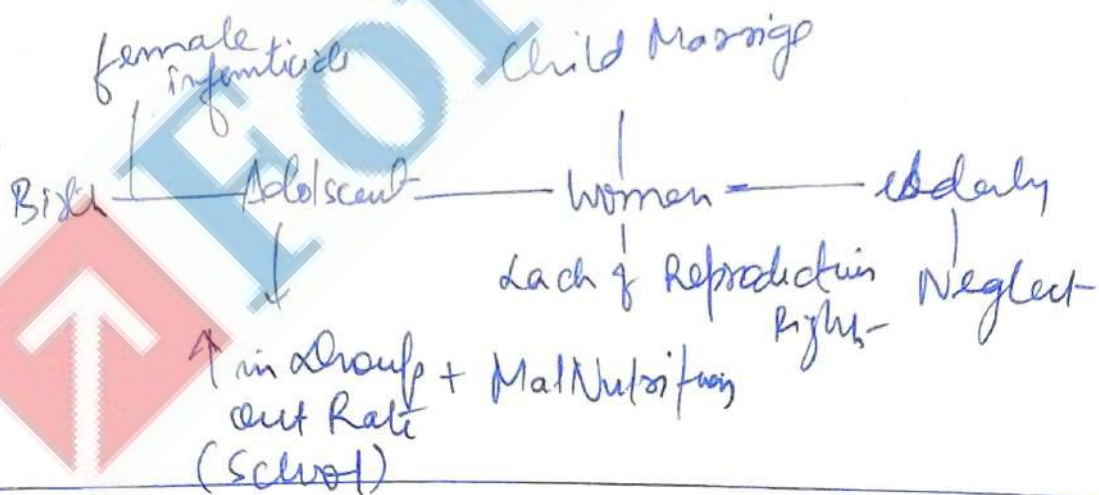 female
infanticide
Child Marriage
Birth Adolscent Women elderly
Lack of Reproduction
Rights
Neglect
↑ in Droup + MalNutrition
out Rate
(School)
FOR